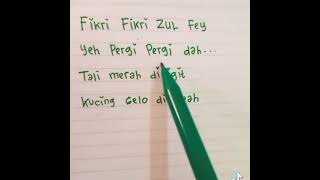 Fikri Fikri ZUL Fey
Yeh Pergi Pergi dah...
Tali merah
Kucing Gelo